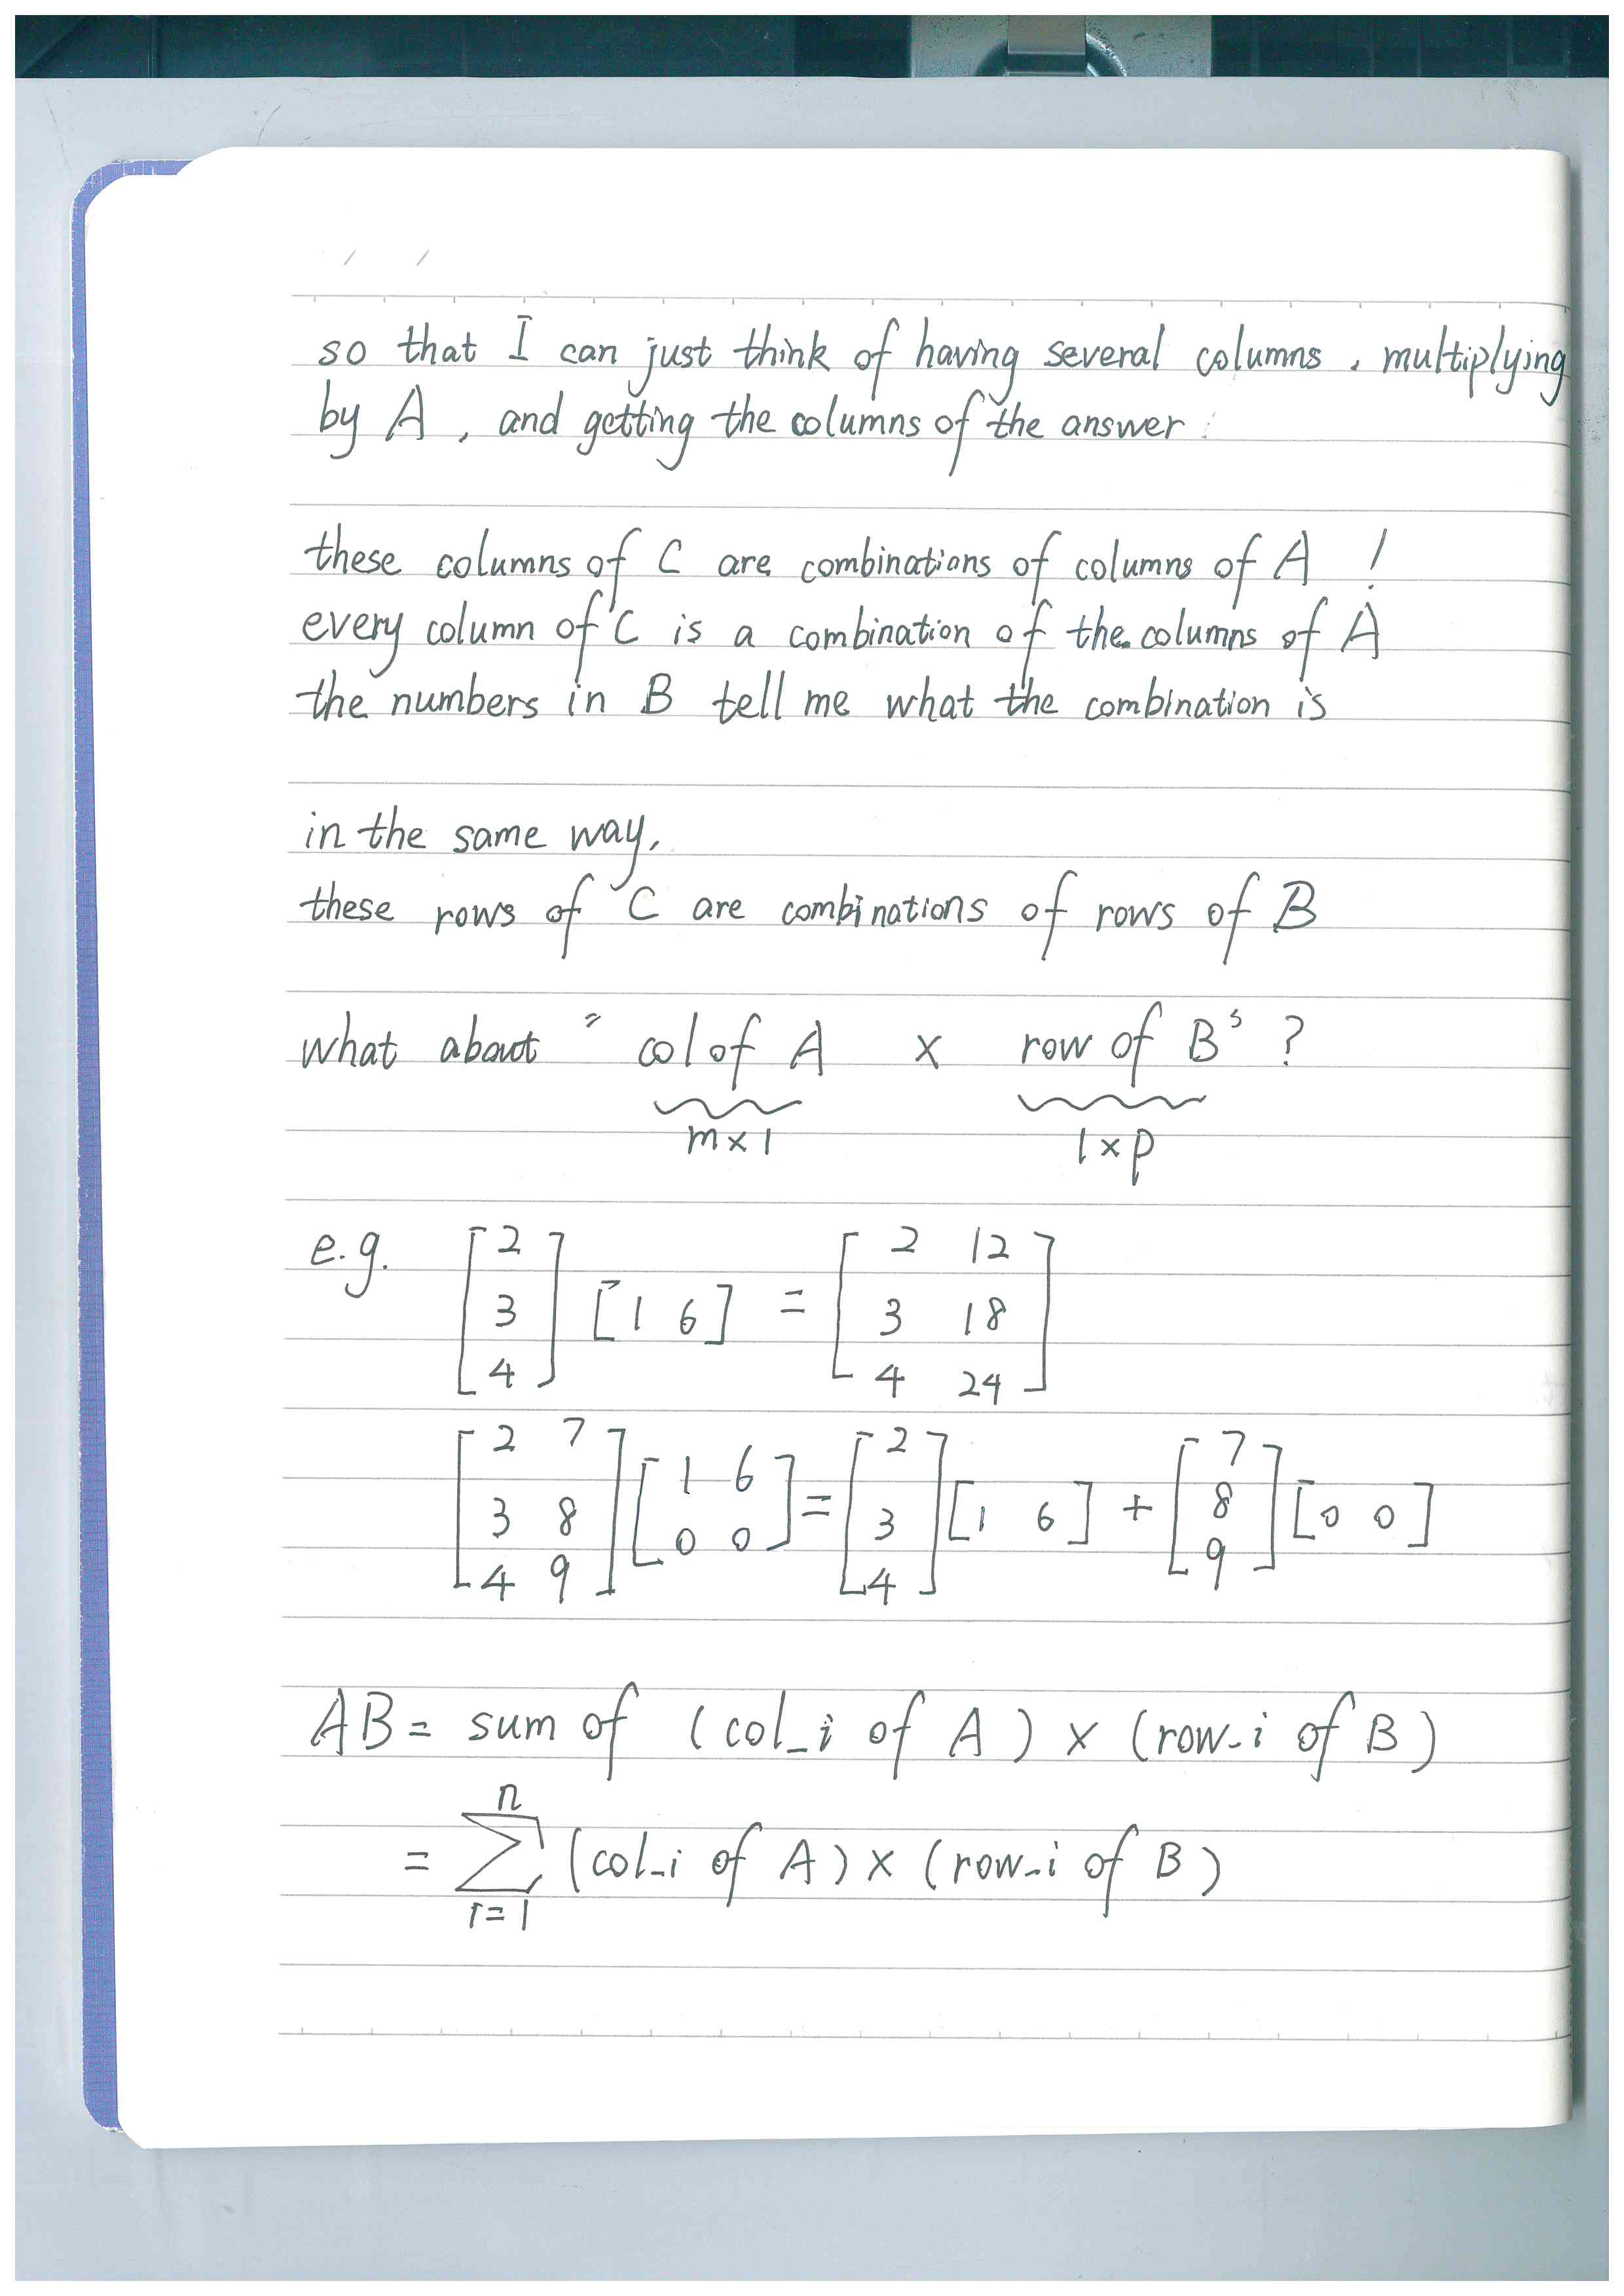 so that I can just think of having several columns, multiplying
by A, and getting the columns of the answer.
these columns of C are combinations of columns of A !
every column of C is a combination of the columns of A
the numbers in B tell me what the combination is
in the same way,
these rows of C are combinations of rows of B
what about " col of A x row of B " ?
m x 1 1 x p
e.g. [2 3 4] [1 6] = [2 12 3 18 4 24]
[2 7 3 8 4 9] [1 6 0 0] = [2 3 4] [1 6] + [7 8 9] [0 0]
AB = sum of (col_i of A) x (row_i of B)
= ∑ n i=1 (col_i of A) x (row_i of B)